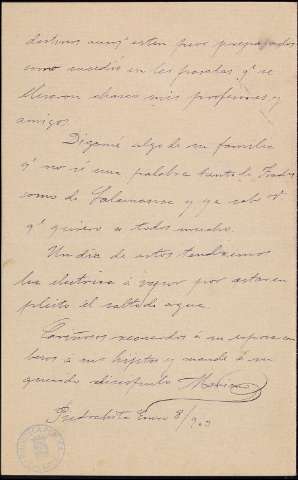 esten poco preparados
como sucedió en los pasados q. se
llevaron chasco mis profesores y
amigos.
Digame algo de su familia
q. no sé una palabra tanto de
como de Salamanca y ya sabe V.
q. quiero a todos mucho.
Un dia de estos tendremos
luz electrica á vapor por estar en
pleito el salto de agua.
Cariñosos recuerdos á su esposa con
besos á sus hijitos y mande á su
querido discipulo
Piedrahita Enero 8/903